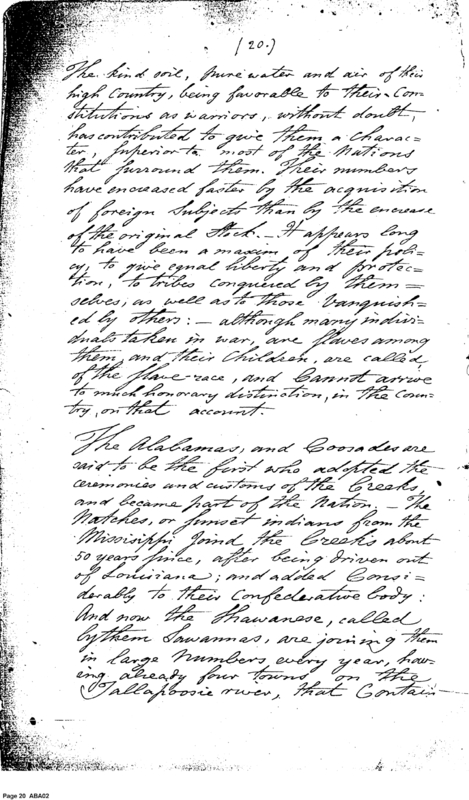 (20.)
The kind soil, pure water and air of their
high Country, being favorable to their Con=
stitutions as warriors, without doubt,
has contributed to give them a charac=
ter, Superior to most of the Nations
that surround them. Their numbers
have encreased faster by the acquisition
of foreign Subjects than by the encrease
of the original Stock. — It appears long
to have been a maxim of their poli=
cy, to give equal liberty and protec=
tion, to tribes conquered by them=
selves, as well as to those vanquish=
ed by others: — although many indivi=
duals taken in war, are slaves among
them, and their Children, are called,
of the slave-race, and Cannot arrive
to much honorary distinction, in the Coun=
try, on that account.
The Alabamas, and Coosades are
said to be the first who adopted the
ceremonies and customs of the Creeks,
and became part of the Nation. — The
Natches, or sunset indians from the
Missisippi Joind the Creeks about
50 years since, after being driven out
of Louisiana; and added Consi=
derably to their Confederative body:
And now the Shawanese, called
by them Sawannas, are joining them
in large Numbers every year, hav=
ing already four towns on the
Tallapoosie river, that Contain
Page 20 ABA02